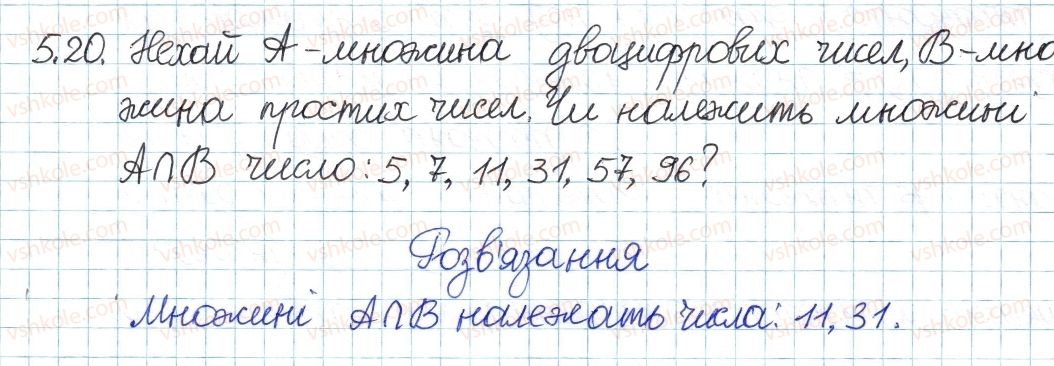 5.20. Нехай A - множина двоцифрових чисел, B - мно
жина простих чисел. Чи належить множині
A∩B число: 5, 7, 11, 31, 57, 96?
Розв'язання
Множині A∩B належать числа: 11, 31.